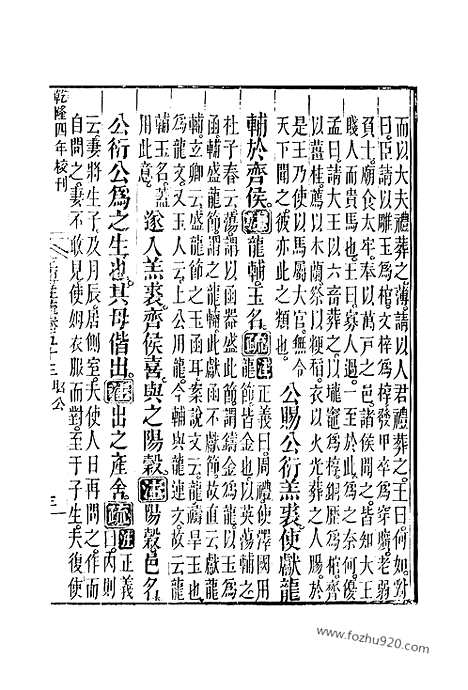 而以大夫禮葬之薄請以人君禮葬之王曰何如對
曰臣請以雕玉爲棺文梓爲椁發甲卒爲穿壙老弱
負土廟食太牢奉以萬戶之邑諸侯聞之皆知大王
賤人而貴馬也王曰寡人過一至於此爲之奈何優
孟曰請大王以六畜葬之以壠竈爲椁銅歷爲棺齊
以薑桂薦以木蘭祭以粳稻衣以火光葬之人腸於
是王乃使以馬屬大官無令
天下聞之彼亦此之類也 公賜公衍羔裘使獻龍
輔於齊侯注龍輔玉名疏注龍輔玉名正義曰周禮使澤國用
龍節皆金也以英蕩輔之
杜子春云蕩謂以函器盛此節謂鑄金爲龍以玉爲
函輔盛龍節謂之龍輔此函不獻節故直云獻龍
輔玄卿云盛龍節之玉函耳案說文云瓏禱旱玉也
爲龍文又玉人云上公用龍今輔與龍連文故云龍
輔玉名蓋
用此意 遂入羔裘齊侯喜與之陽穀注陽穀邑名
公衍公爲之生也其母偕出注出之產舍疏注正義曰內則
云妻將生子及月辰居側室夫使人日再問之作而
自問之妻不敢見使姆衣服而對至于子生夫復使
乾隆四年校刊
五十三 昭公
三
www.fozhu920.com